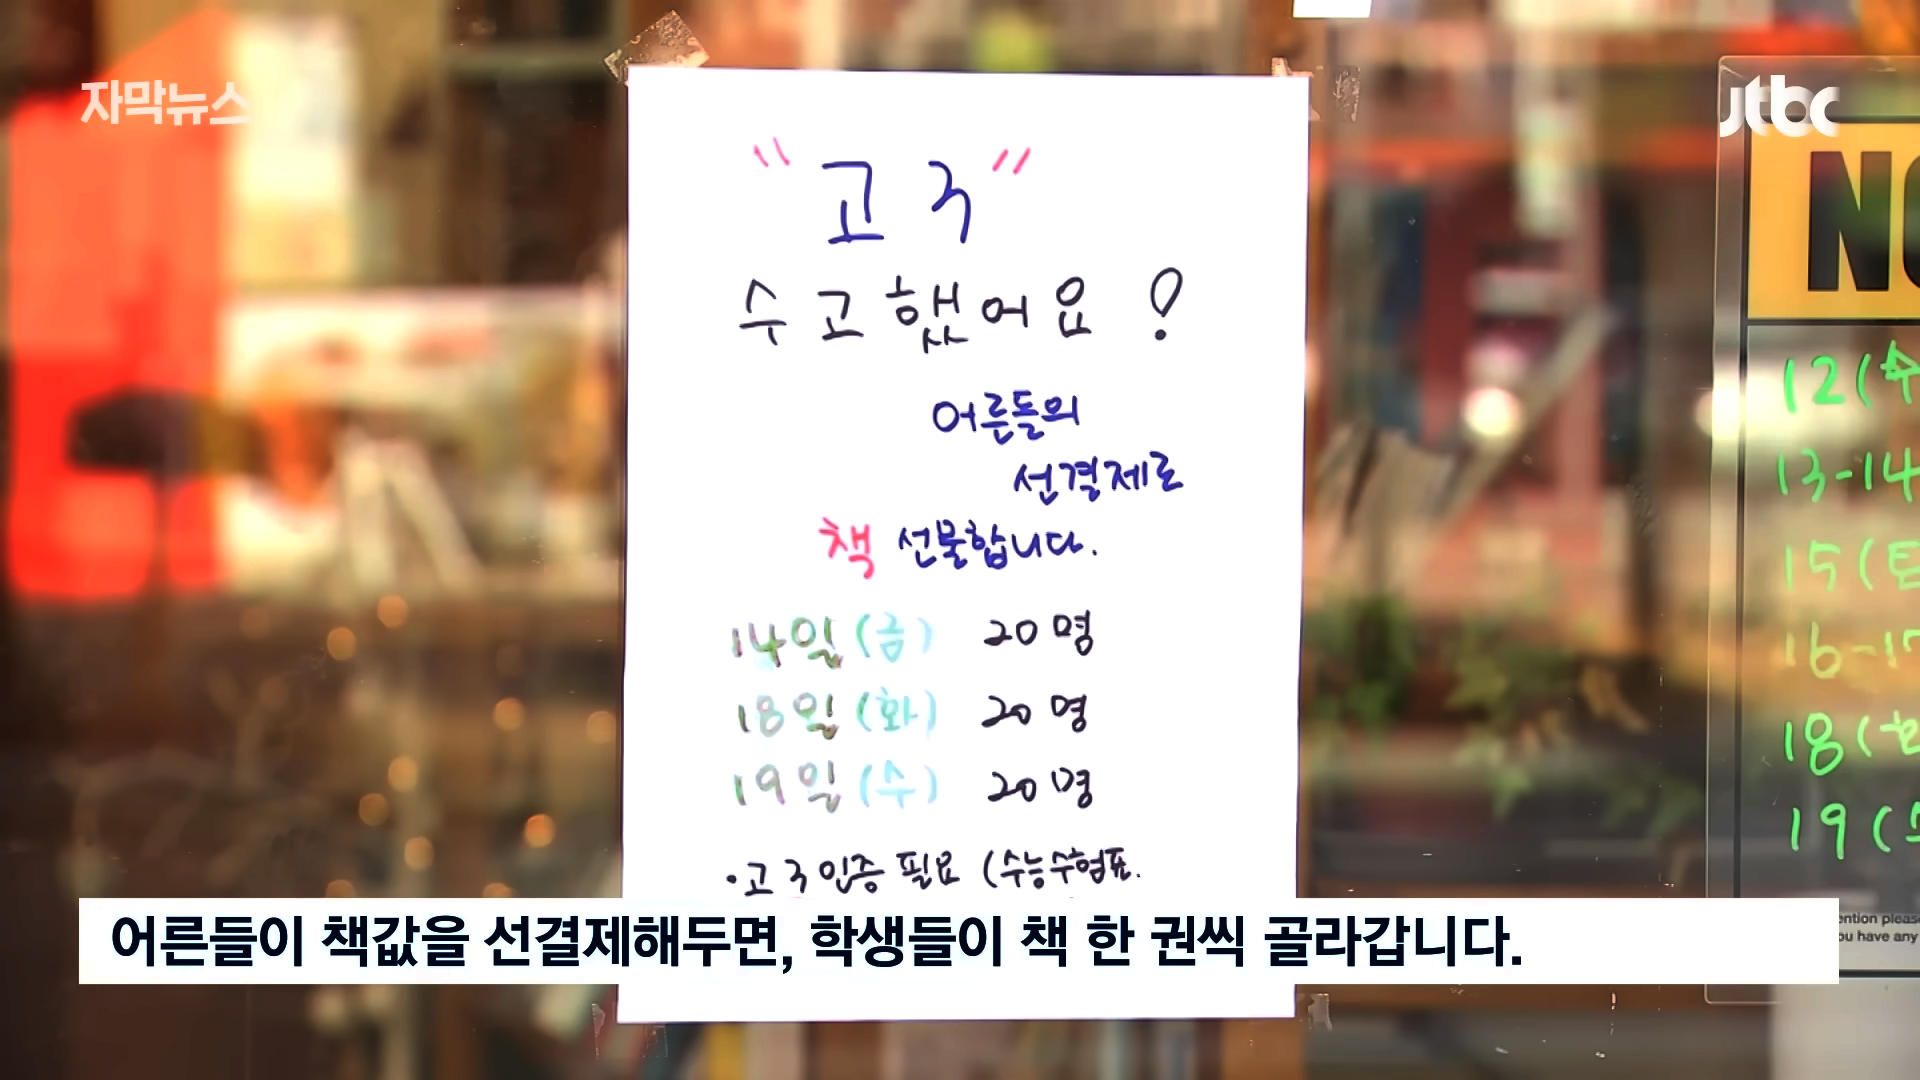 자막뉴스
jtbc
"고3"
수고했어요!
어른들의
선결제로
책 선물합니다.
14일(금) 20명
18일(화) 20명
19일(수) 20명
·고3인증 필요 (수능수험표.
어른들이 책값을 선결제해두면, 학생들이 책 한 권씩 골라갑니다.
12(수
13-14
15(토
16-17
18(화
19(수
ention please
ou have any